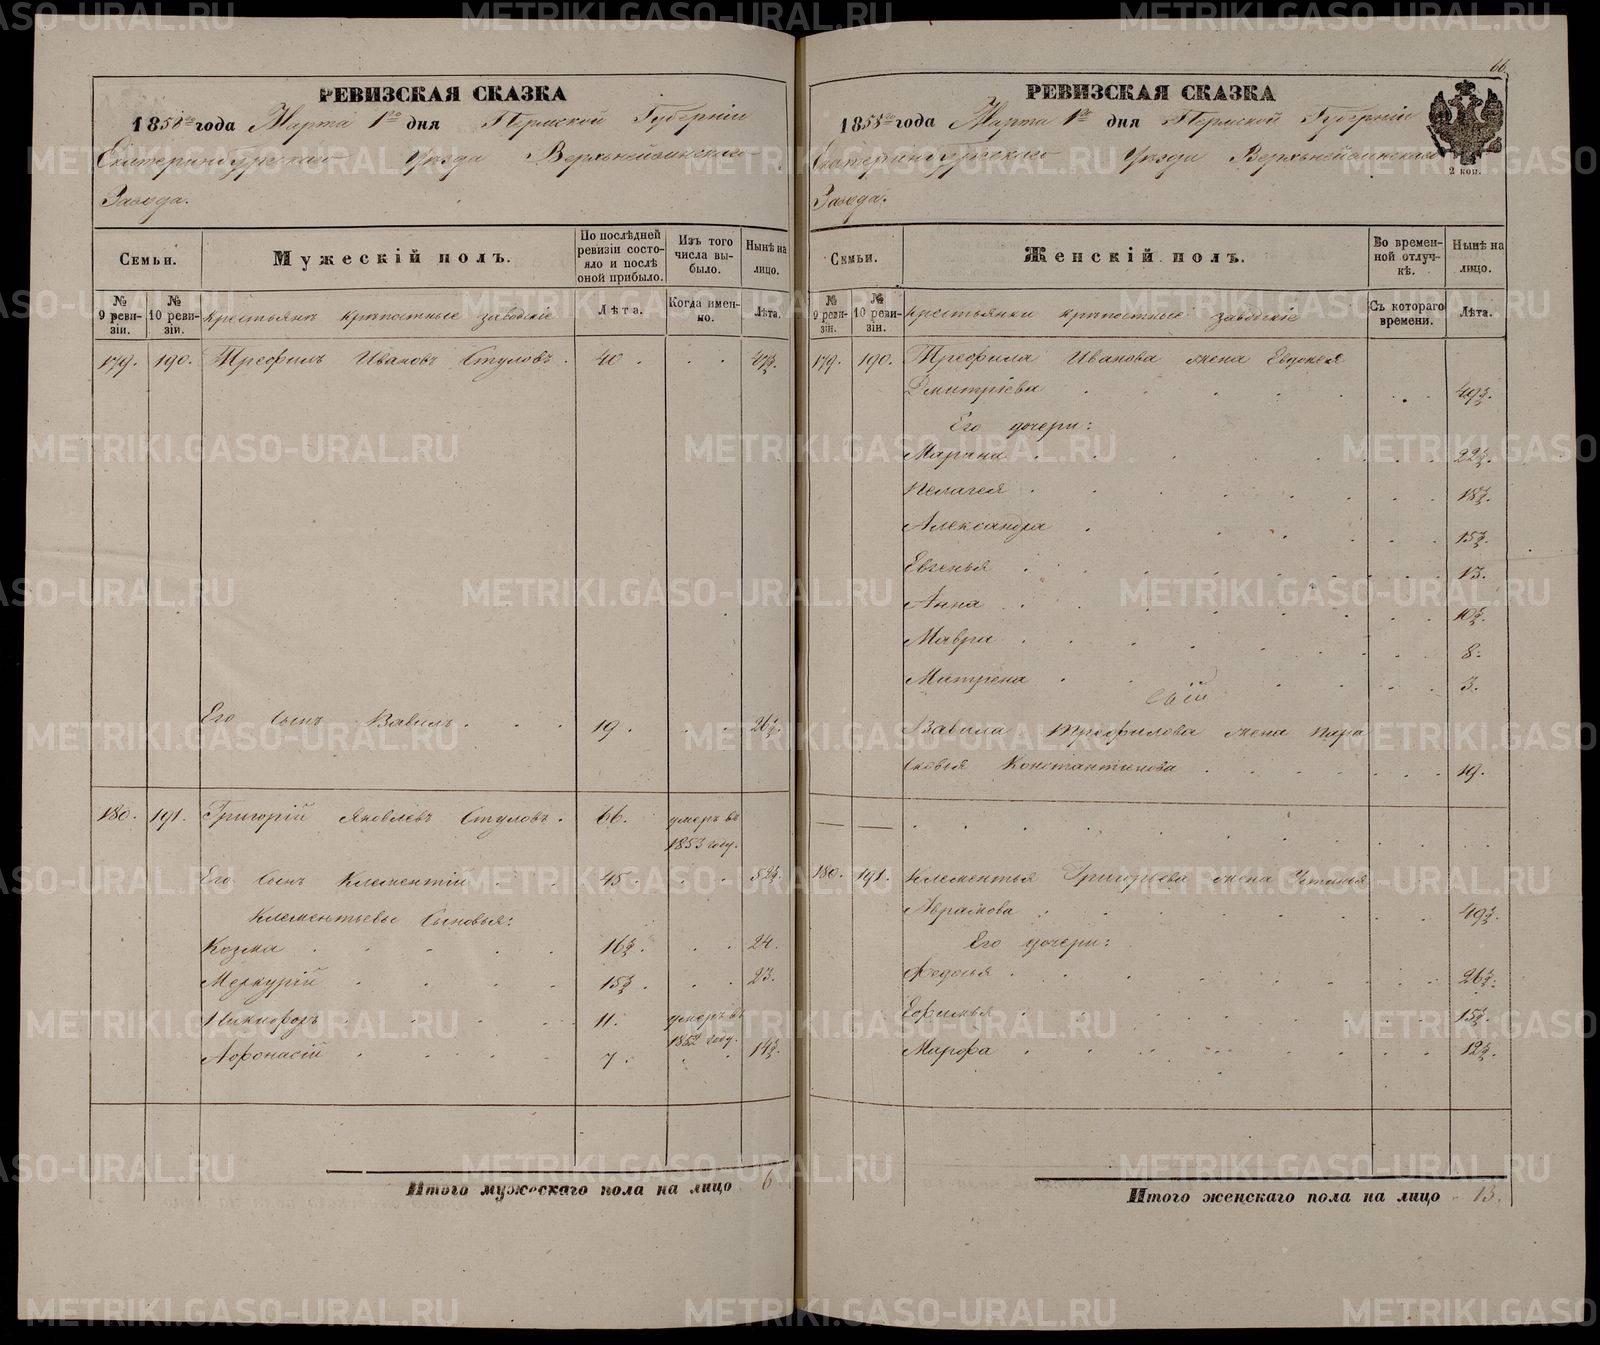 РЕВИЗСКАЯ СКАЗКА
1858го года Марта 1го дня Пермской Губерніи
Екатеринбургскаго уезда Верхънейвинскаго
Завода.
Семьи.
Мужескій полъ.
По послѣдней ревизіи состояло и послѣ оной прибыло.
Изъ того числа выбыло.
Нынѣ на лицо.
№ 9 ревизіи.
№ 10 ревизіи.
крестьянъ крѣпостные заводскіе
Лѣта.
Когда именно.
Лѣта.
179. 190. Трефилъ Ивановъ Стуловъ. 40
Его сынъ Вавилъ. 19.
180. 191. Григорій Яковлевъ Стуловъ. 66. умеръ въ
1853 году.
Его сынъ Клементій 45.
Клементьевы сыновья:
Козма 16½. 24.
Меркурій 15½. 23.
Никифоръ 11. умеръ въ
1852 году.
Афонасій 7. 14½.
Итого мужескаго пола на лицо 6
66
РЕВИЗСКАЯ СКАЗКА
1858го года Марта 1го дня Пермской Губерніи
Екатеринбургскаго уезда Верхънейвинскаго
Завода.
2 коп.
Семьи.
Женскій полъ.
Во временной отлучкѣ.
Нынѣ на лицо.
№ 9 ревизіи.
№ 10 ревизіи.
крестьянки крѣпостные заводскіе
Съ котораго времени.
Лѣта.
179. 190. Трефила Иванова жена Евдокея
Дмитріева 49½.
Его дочери:
Марина 22½.
Пелагея 18½.
Александра 15½.
Евгенья 13.
Анна 10½.
Мавра 8.
Матрена 3.
Вавила Трефилова жена Пара
сковья Константинова 19.
180. 191. Клементья Григорьева жена Устинья
Аврамова 49½.
Его дочери:
Федосья 26½.
Ефимья 15½.
Марфа 12½.
Итого женскаго пола на лицо 13.
METRIKI.GASO-URAL.RU